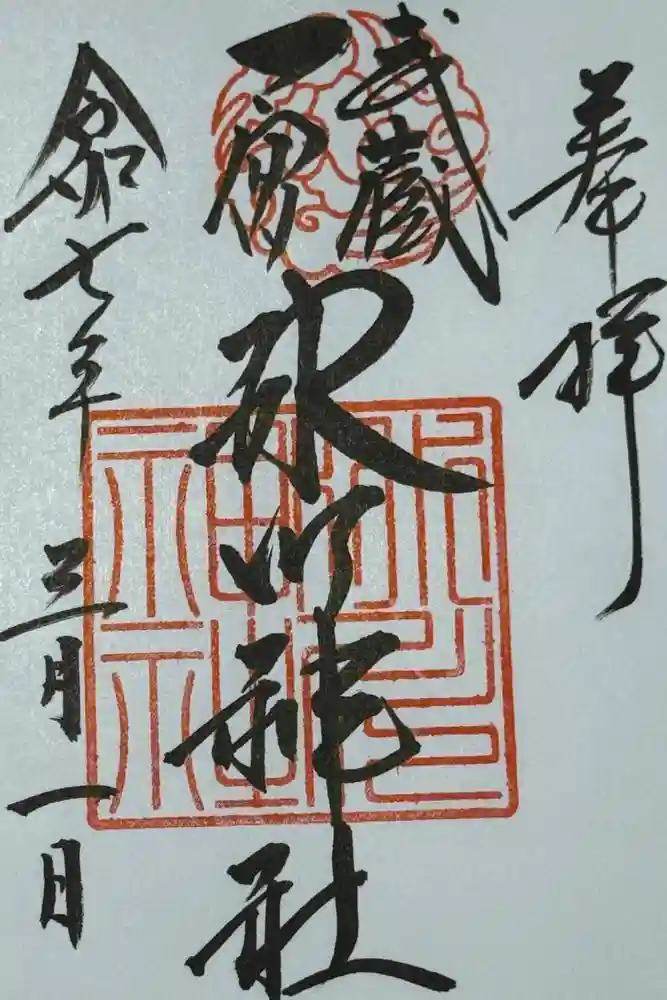 奉拝
武蔵
一宮
氷川神社
令和七年三月一日
氷川
神社